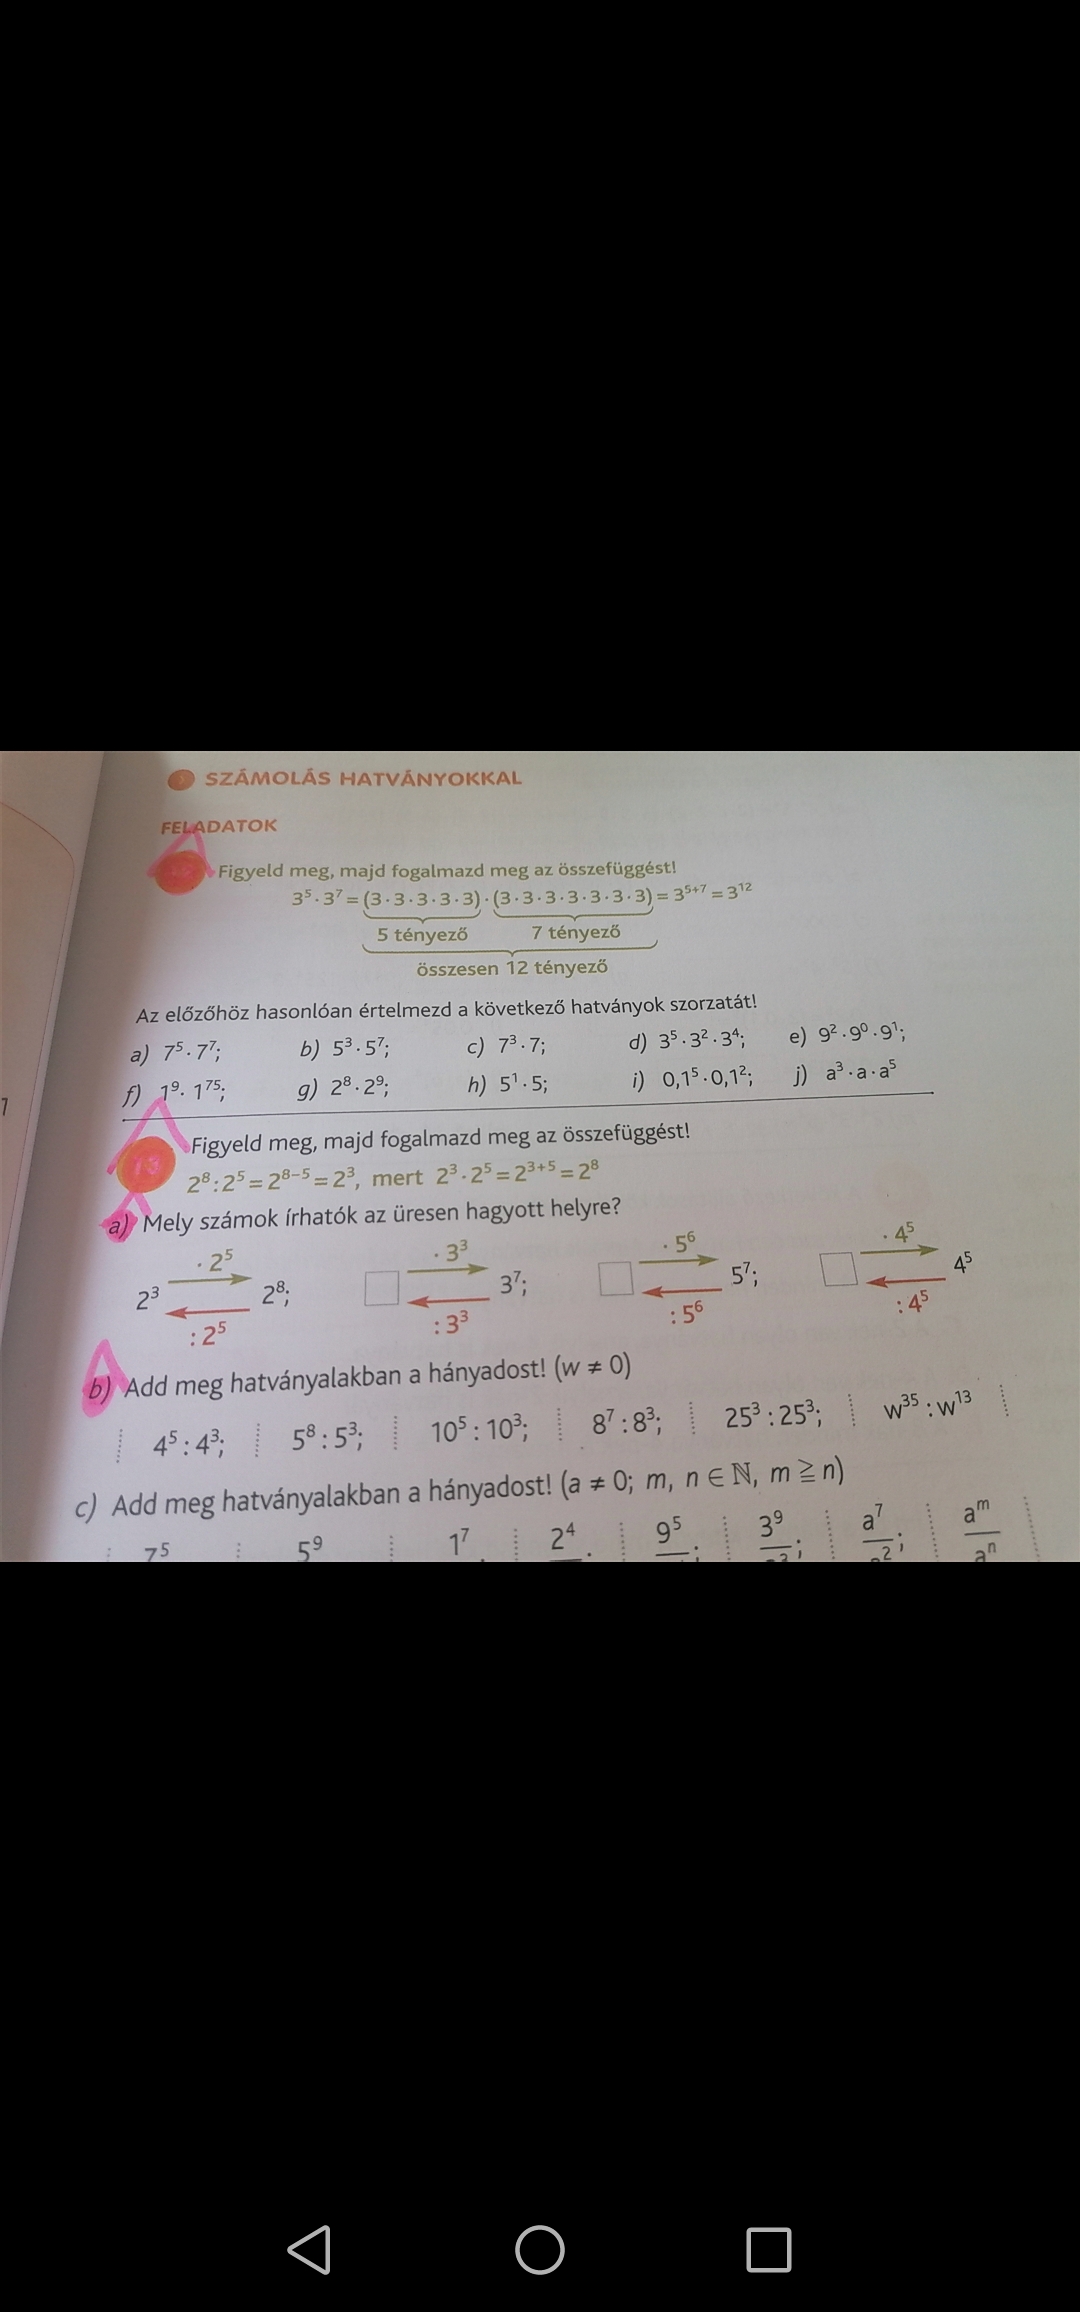 SZÁMOLÁS HATVÁNYOKKAL
FELADATOK
Figyeld meg, majd fogalmazd meg az összefüggést!
3⁵·3⁷ = (3·3·3·3·3)·(3·3·3·3·3·3·3) = 3⁵⁺⁷ = 3¹²
5 tényező 7 tényező
összesen 12 tényező
Az előzőhöz hasonlóan értelmezd a következő hatványok szorzatát!
a) 7⁵·7⁷; b) 5³·5⁷; c) 7³·7; d) 3⁵·3²·3⁴; e) 9²·9⁰·9¹;
f) 1⁹·1⁷⁵; g) 2⁸·2⁹; h) 5¹·5; i) 0,1⁵·0,1²; j) a³·a·a⁵
7
13 Figyeld meg, majd fogalmazd meg az összefüggést!
2⁸:2⁵ = 2⁸⁻⁵ = 2³, mert 2³·2⁵ = 2³⁺⁵ = 2⁸
a) Mely számok írhatók az üresen hagyott helyre?
·2⁵ ·3³ ·5⁶ ·4⁵
2³ 2⁸; 3⁷; 5⁷; 4⁵
:2⁵ :3³ :5⁶ :4⁵
b) Add meg hatványalakban a hányadost! (w ≠ 0)
4⁵:4³; 5⁸:5³; 10⁵:10³; 8⁷:8³; 25³:25³; w³⁵:w¹³
c) Add meg hatványalakban a hányadost! (a ≠ 0; m, n ∈ ℕ, m ≧ n)
7⁵ 5⁹ 1⁷ 2⁴ 9⁵ 3⁹ a⁷ aᵐ
2; 2; aⁿ